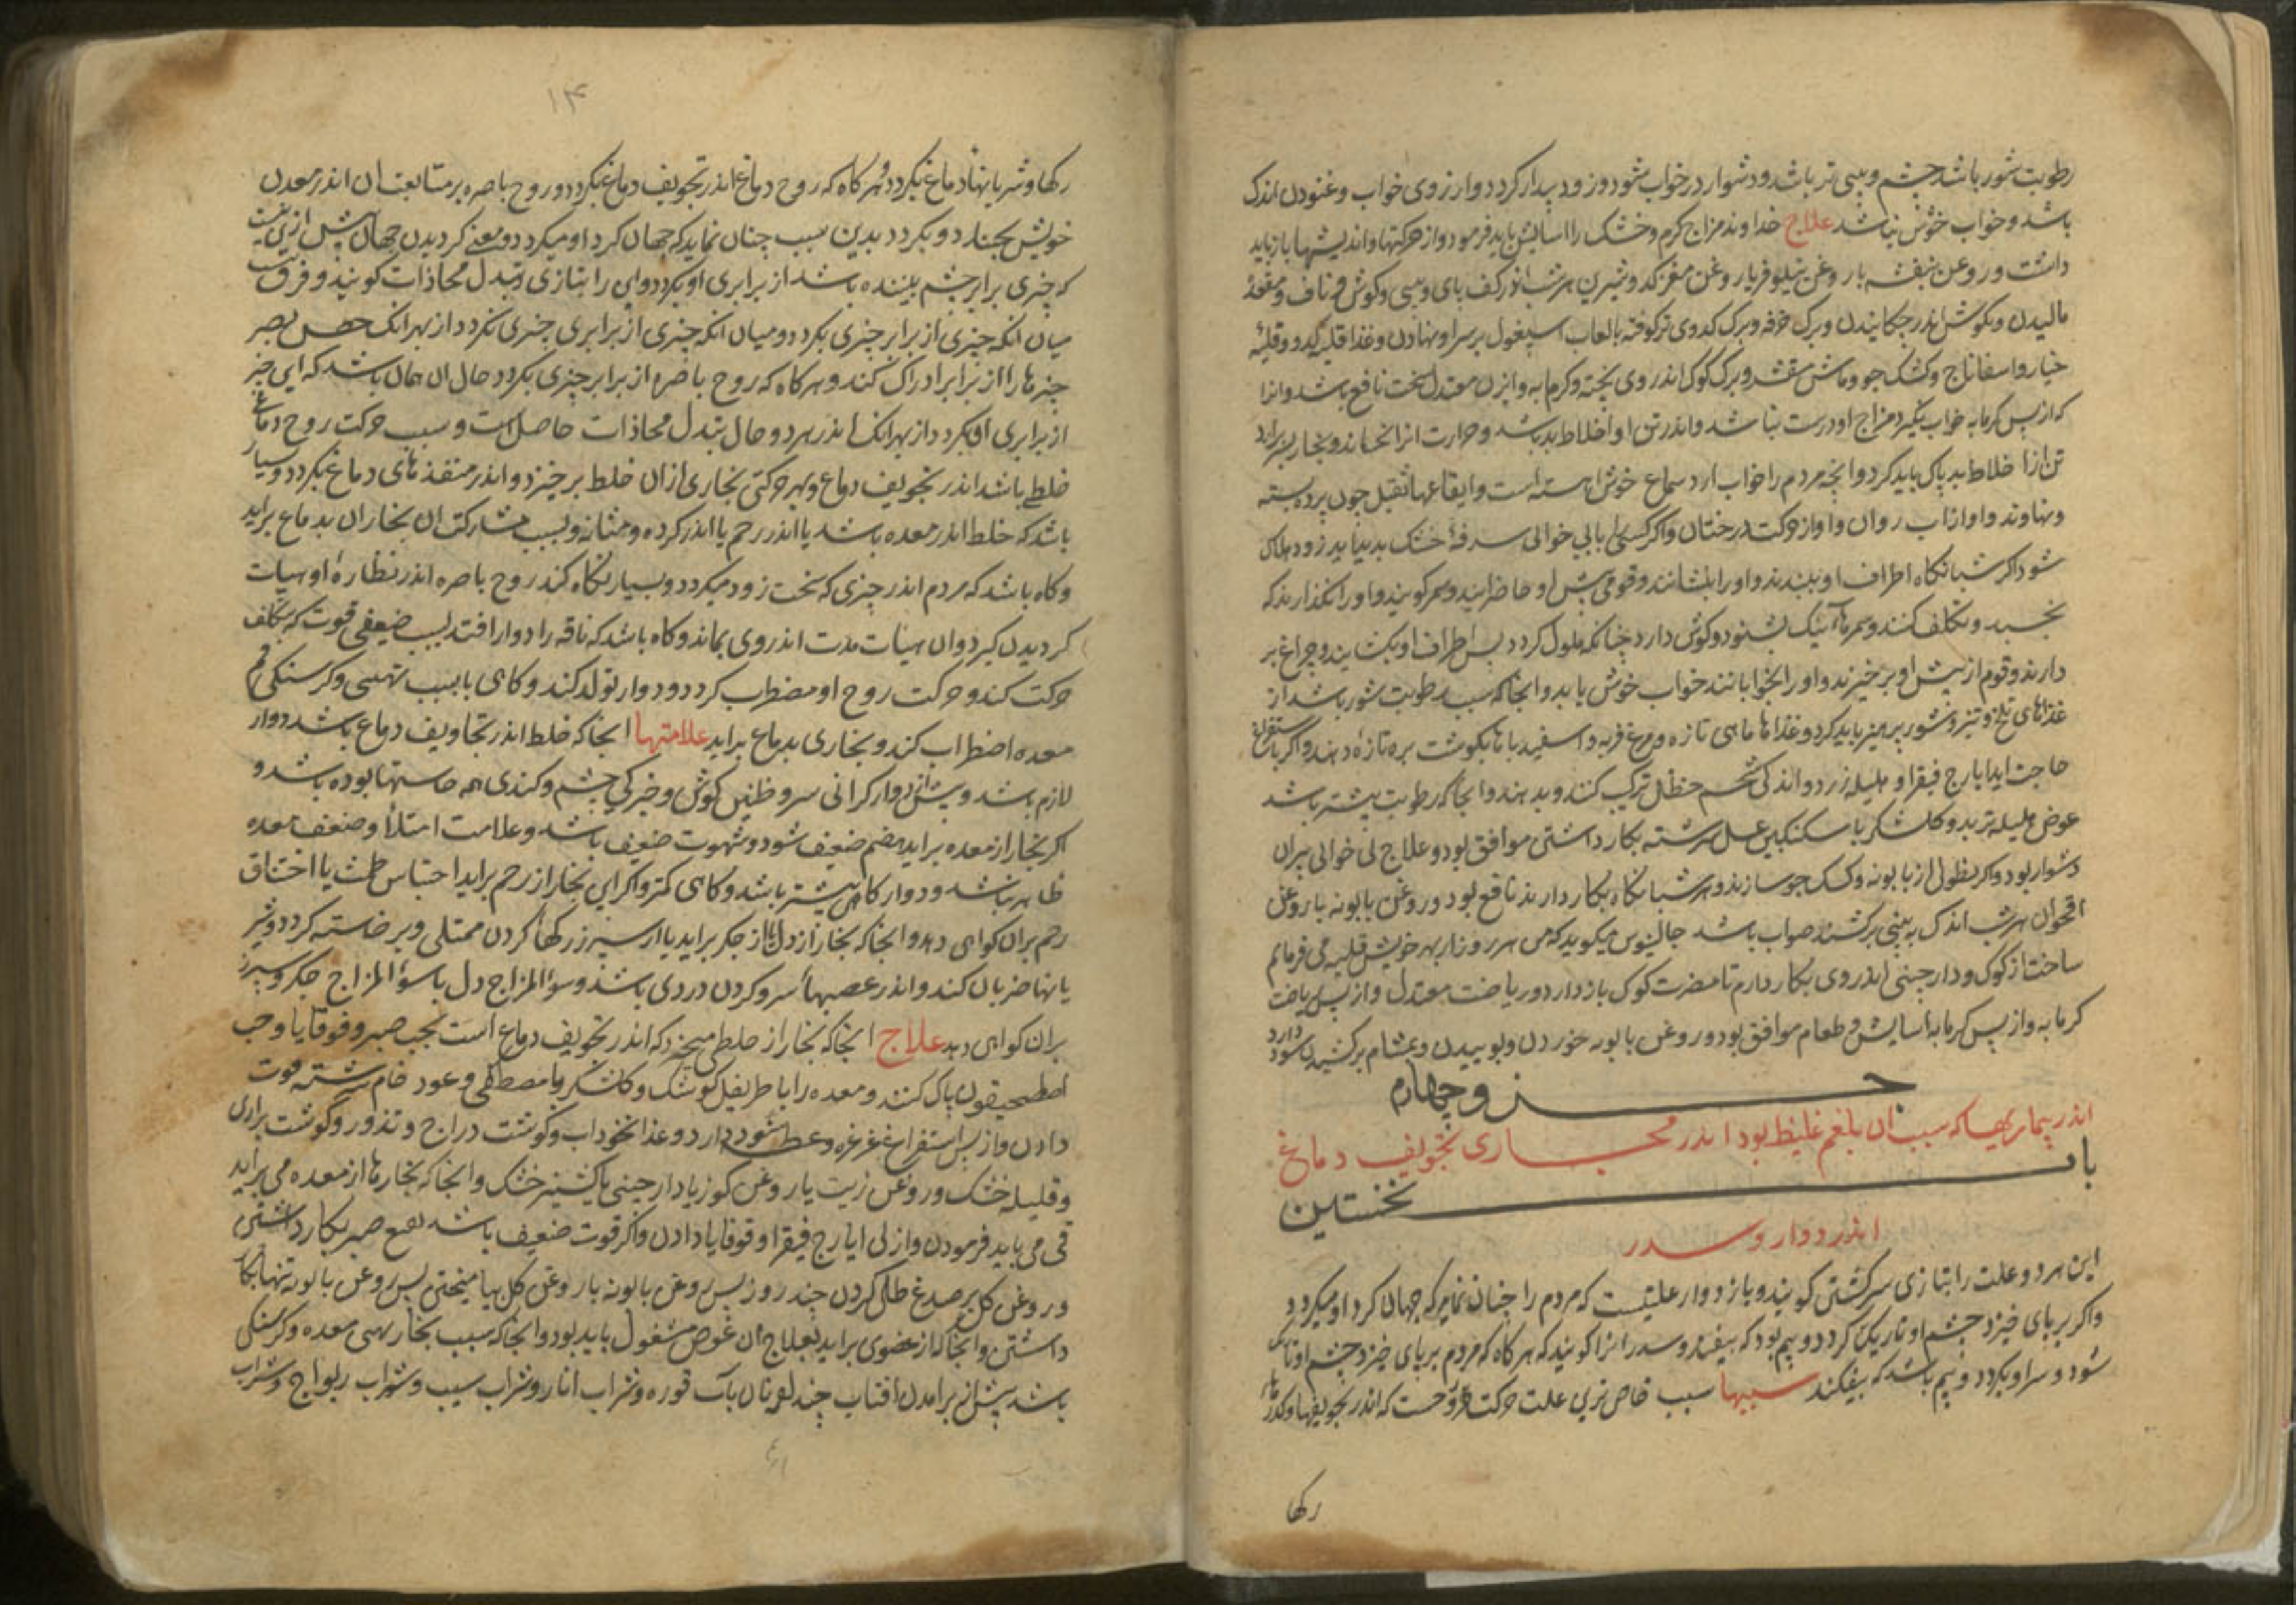 رطوبت شور باشد چشم و بینی تر باشد و دشوار در خواب شود و زود بیدار کردد و ارزوی خواب و غنودن اندک
باشد و خواب خوش نباشد علاج خداوند مزاج کرم و خشک را اسایش باید فرمود و از حرکتها و اندیشها باز باید
داشت و روغن بنفشه یا روغن نیلوفر یا روغن مغز کدو شیرین هر شب اندر کف پای و بینی و کوش و ناف و مقعد
مالیدن و بکوش اندر چکانیدن و برک خرفه و برک کدوی تر کوفته بالعاب اسپغول بر سر او نهادن و غذا قلیه کدو و قلیه
خیار و اسفاناج و کشک جو و ماش مقشر و برک کوک اندر وی پخته و کرمابه و ابزن معتدل سخت نافع باشد و انرا
که از پس کرمابه خواب نکیرد مزاج او درست نباشد و اندر تن او اخلاط بد باشد و حرارت انرا بجنباند و بخار بر سر براید
تن از اخلاط بد پاک باید کرد و انچه مردم را خواب ارد سماع خوش اهسته است و ایقاعها ثقیل چون پرده بسته
و نهاوند و اواز اب روان و اواز حرکت درختان و اکر کسی را بی خوابی سرفه خشک پدید اید زود هلاک
شود اکر شبانکاه اطراف او ببندند و او را بنشانند و قومی پیش او حاضر ایند و سمر کویند و او را نکذارند که
بخسبد و بتکلف کنند و سمرها نیک بشنود و کوش دارد چنانکه ملول کردد پس اطراف او بکشایند و چراغ بر
دارند و قوم از پیش او بر خیزند و او را بخوابانند خواب خوش یابد و انجا که سبب رطوبت شور باشد از
غذاهای تلخ و تیز و شور پرهیز باید کرد و غذاها ماهی تازه و مرغ فربه و اسفیدباها بکوشت بره تازه دهند و اکر باستفراغ
حاجت اید ایارج فیقرا و هلیله زرد و اندکی شحم حنظل ترکیب کنند و بدهند و انجا که رطوبت بیشتر باشد
عوض هلیله تربد و کلشکر با سکنکبین عسل سرشته بکار داشتن موافق بود و علاج بی خوابی پیران
دشوار بود و اکر نطولی از بابونه و کشک جو سازند و هر شبانکاه بکار دارند نافع بود و روغن بابونه یا روغن
اقحوان هر شب اندک به بینی بر کشند صواب باشد جالینوس میکوید که من هر روز از بهر خویش قلیه می فرمایم
ساختن از کوک و دارچینی اندر وی بکار دارم تا مضرت کوک باز دارد و ریاضت معتدل و از پس ریاضت
کرمابه و از پس کرمابه اسایش و طعام موافق بود و روغن بابونه خوردن و بوییدن و بمشام بر کشیدن سود دارد
جزو چهارم
اندر بیماریها که سبب ان بلغم غلیظ بود اندر مجاری تجویف دماغ
باب نخستین
اندر دوار و سدر
این هر دو علت را بتازی سرکشتن کویند و باز دوار علتیست که مردم را چنان نماید که جهان کرد او میکردد
و اکر بر پای خیزد چشم او تاریک کردد و بیم بود که بیفتد و سدر انرا کویند که هر کاه که مردم بر پای خیزد چشم او تاریک
شود و سر او بکردد و بیم باشد که بیفکند سببها سبب خاص ترین علت حرکت روح است که اندر تجویفها و کذرها
رکها
۱۴
رکها و شریانها دماغ بکردد و هر کاه که روح دماغ اندر تجویف دماغ بکردد و روح باصره بر متابعت ان اندر معدن
خویش بجنبد و بکردد بدین سبب چنان نماید که جهان کرد او میکردد و معنی کردیدن جهان پیش از این نیست
که چیزی برابر چشم بیننده باشد از برابری او بکردد و این را بتازی تبدل محاذات کویند و فرق نیست
میان انکه چیزی از برابر چیزی بکردد و میان انکه چیزی از برابری چیزی نکردد از بهر انک حس بصر
چیزها را از برابر ادراک کند و هر کاه که روح باصره از برابر چیزی بکردد حال ان همان باشد که این چیز
از برابری او بکردد از بهر انک اندر هر دو حال تبدل محاذات حاصل است و سبب حرکت روح دماغ
خلطی باشد اندر تجویف دماغ و بهر حرکتی بخاری از ان خلط بر خیزد و اندر منفذهای دماغ بکردد و بسیار
باشد که خلط اندر معده باشد یا اندر رحم یا اندر کرده و مثانه و بسبب مشارکت ان بخار ان بدماغ براید
و کاه باشد که مردم اندر چیزی که سخت زود میکردد و بسیار نکاه کند روح باصره اندر نظاره او هیات
کردیدن کیرد و ان هیات مدت اندر وی بماند و کاه باشد که ناقه را دوار افتد بسبب ضعیفی قوت که بتکلف
حرکت کند و حرکت روح او مضطرب کردد و دوار تولد کند و کاهی بسبب تهیی و کرسنکی فم
معده اضطراب کند و بخاری بدماغ براید علامتها انجا که خلط اندر تجاویف دماغ باشد دوار
لازم باشد و پیش از دوار کرانی سر و طنین کوش و خیرکی چشم و کندی همه حاستها بوده باشد و
اکر بخار از معده براید هضم ضعیف شود و شهوت ضعیف باشد و علامت امتلا و ضعف معده
ظاهر باشد و دوار کاهی بیشتر باشد و کاهی کمتر و اکر این بخار از رحم براید احتباس طمث یا اختناق
رحم بران کواهی دهد و انجا که بخار از دل یا از جکر براید یا از سپرز رکها کردن ممتلی و بر خاسته کردد و شر
یانها ضربان کند و اندر عصبها سر و کردن دردی باشد و سوالمزاج دل یا سوالمزاج جکر و سپرز
بران کواهی دهد علاج انجا که بخار از خلطی میخیزد که اندر تجویف دماغ است بحب صبر و قوقایا و حب
اصطمخیقون پاک کنند و معده را با طریفل کوشک و کلشکر با مصطکی و عود خام سرشته قوت
دادن و از پس استفراغ غرغره و عطسه سود دارد و غذا نخوداب و کوشت دراج و تذرو و کوشت براری
و قلیه خشک و روغن زیت یا روغن کوز یا دارچینی یا کشنیز خشک و انجا که بخارها از معده می براید
قی می باید فرمودن و از پی ایارج فیقرا و قوقایا دادن و اکر قوت ضعیف باشد نقیع صبر بکار داشتن
و روغن کل بر صدغ طلی کردن چند روز پس روغن بابونه با روغن کل بیامیختن پس روغن بابونه تنها بکار
داشتن و انجا که از عضوی براید بعلاج ان عضو مشغول باید بود و انجا که سبب بخار تهی معده و کرسنکی
باشد پیش از برامدن افتاب چند لقمه نان باب غوره و شراب انار و شراب سیب و شراب ریواج و شراب